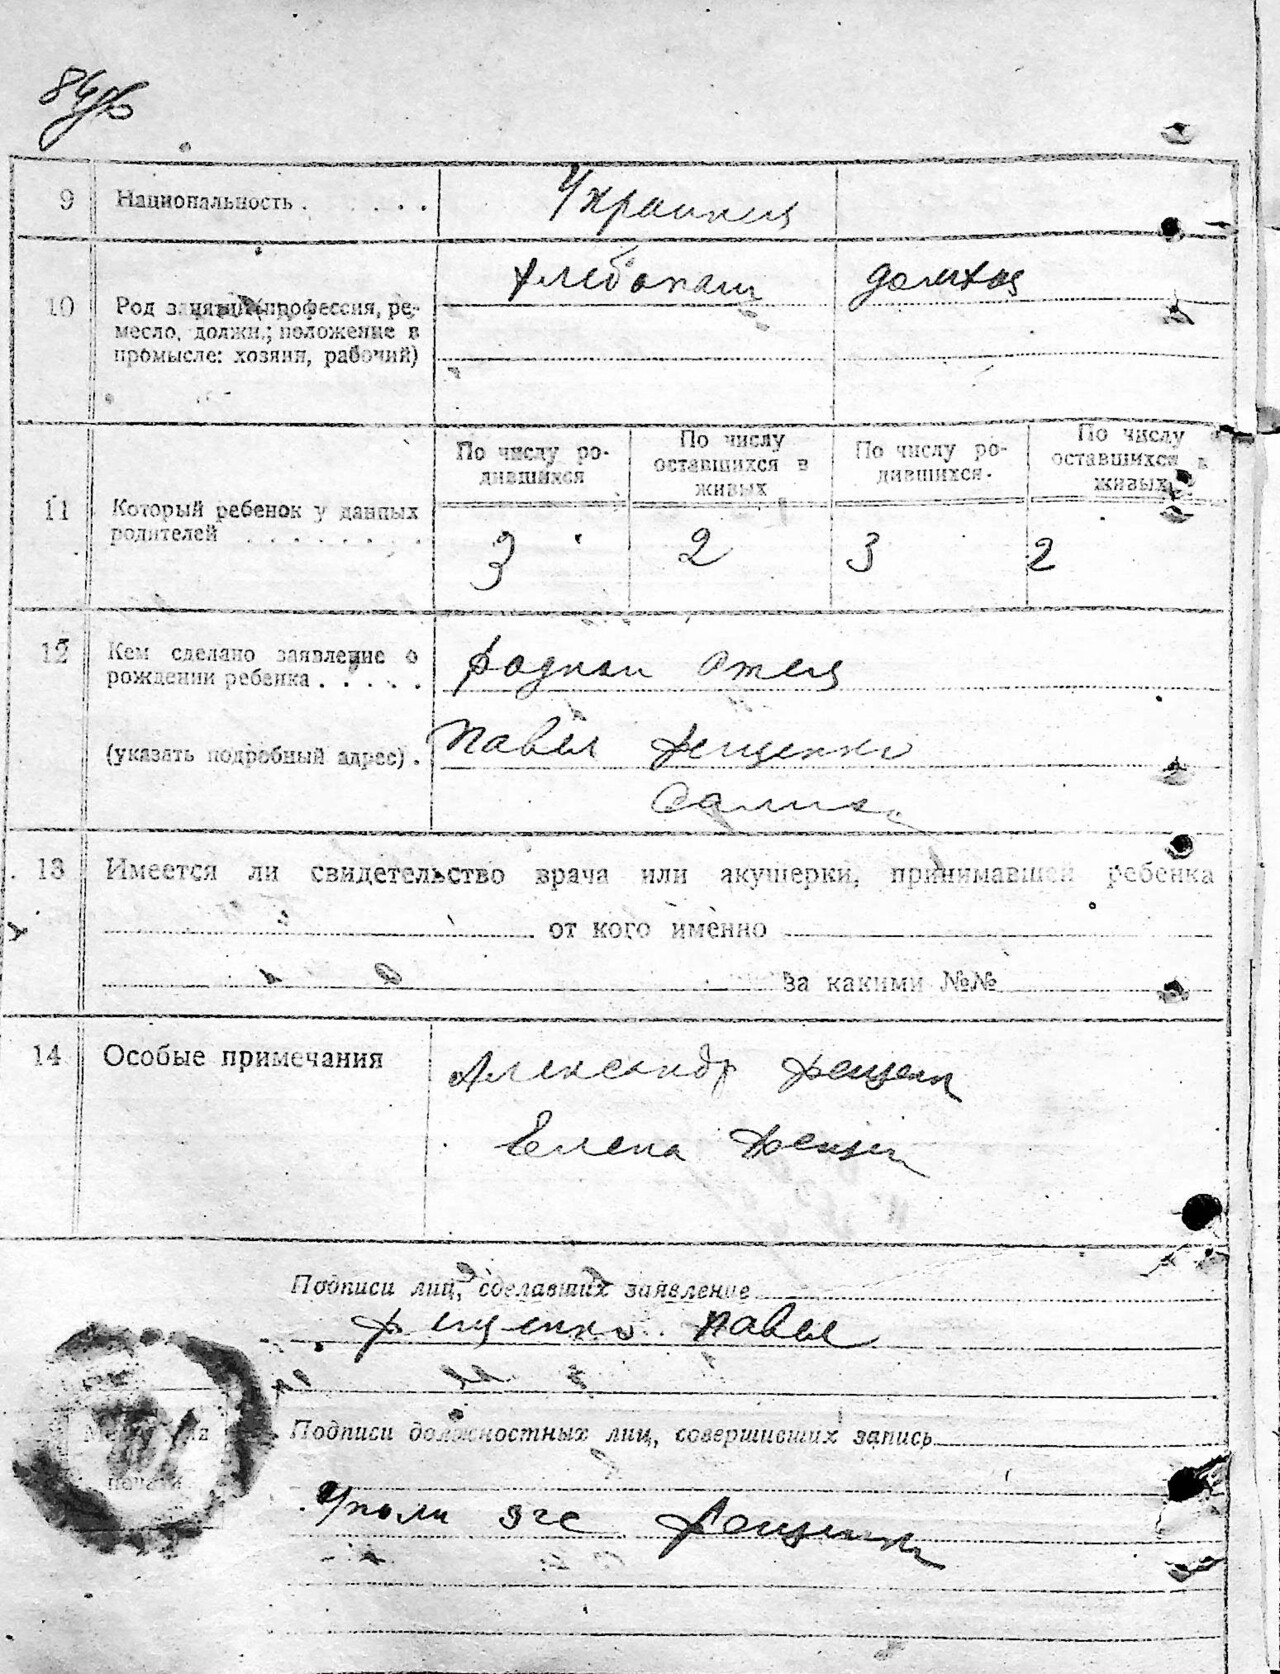 84/об
9 Национальность . . . . . Украинец
10 Род занятий (профессия, ре-
месло, должн.; положение в
промысле: хозяин, рабочий)
Хлебопаш домхоз
11 Который ребенок у данных
родителей . . . . . . .
По числу ро-
дившихся
По числу
оставшихся в
живых
По числу ро-
дившихся.
По числу
оставшихся в
живых
3 2 3 2
12 Кем сделано заявление о
рождении ребенка . . . . .
Родной отец
(указать подробный адрес) .
Павел Рещенко
13 Имеется ли свидетельство врача или акушерки, принимавшей ребенка
от кого именно
за какими №№
14 Особые примечания
Александр Рещенк
Елена Рещен
Подписи лиц, сделавших заявление
Рещенко Павел
Место для
печати
Подписи должностных лиц, совершивших запись
Уполн згс Рещенк